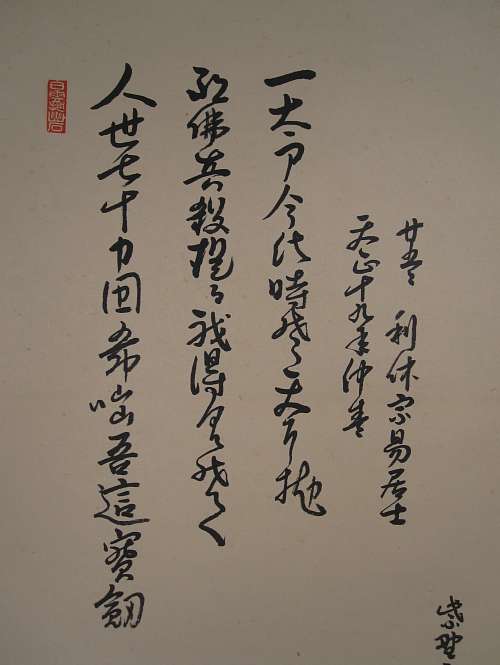 人世七十力囲希咄吾這寶劔
祖佛共殺提る我得具足の
一太刀今此時そ天に抛
天正十九年仲春
廿五日 利休宗易居士
紫野